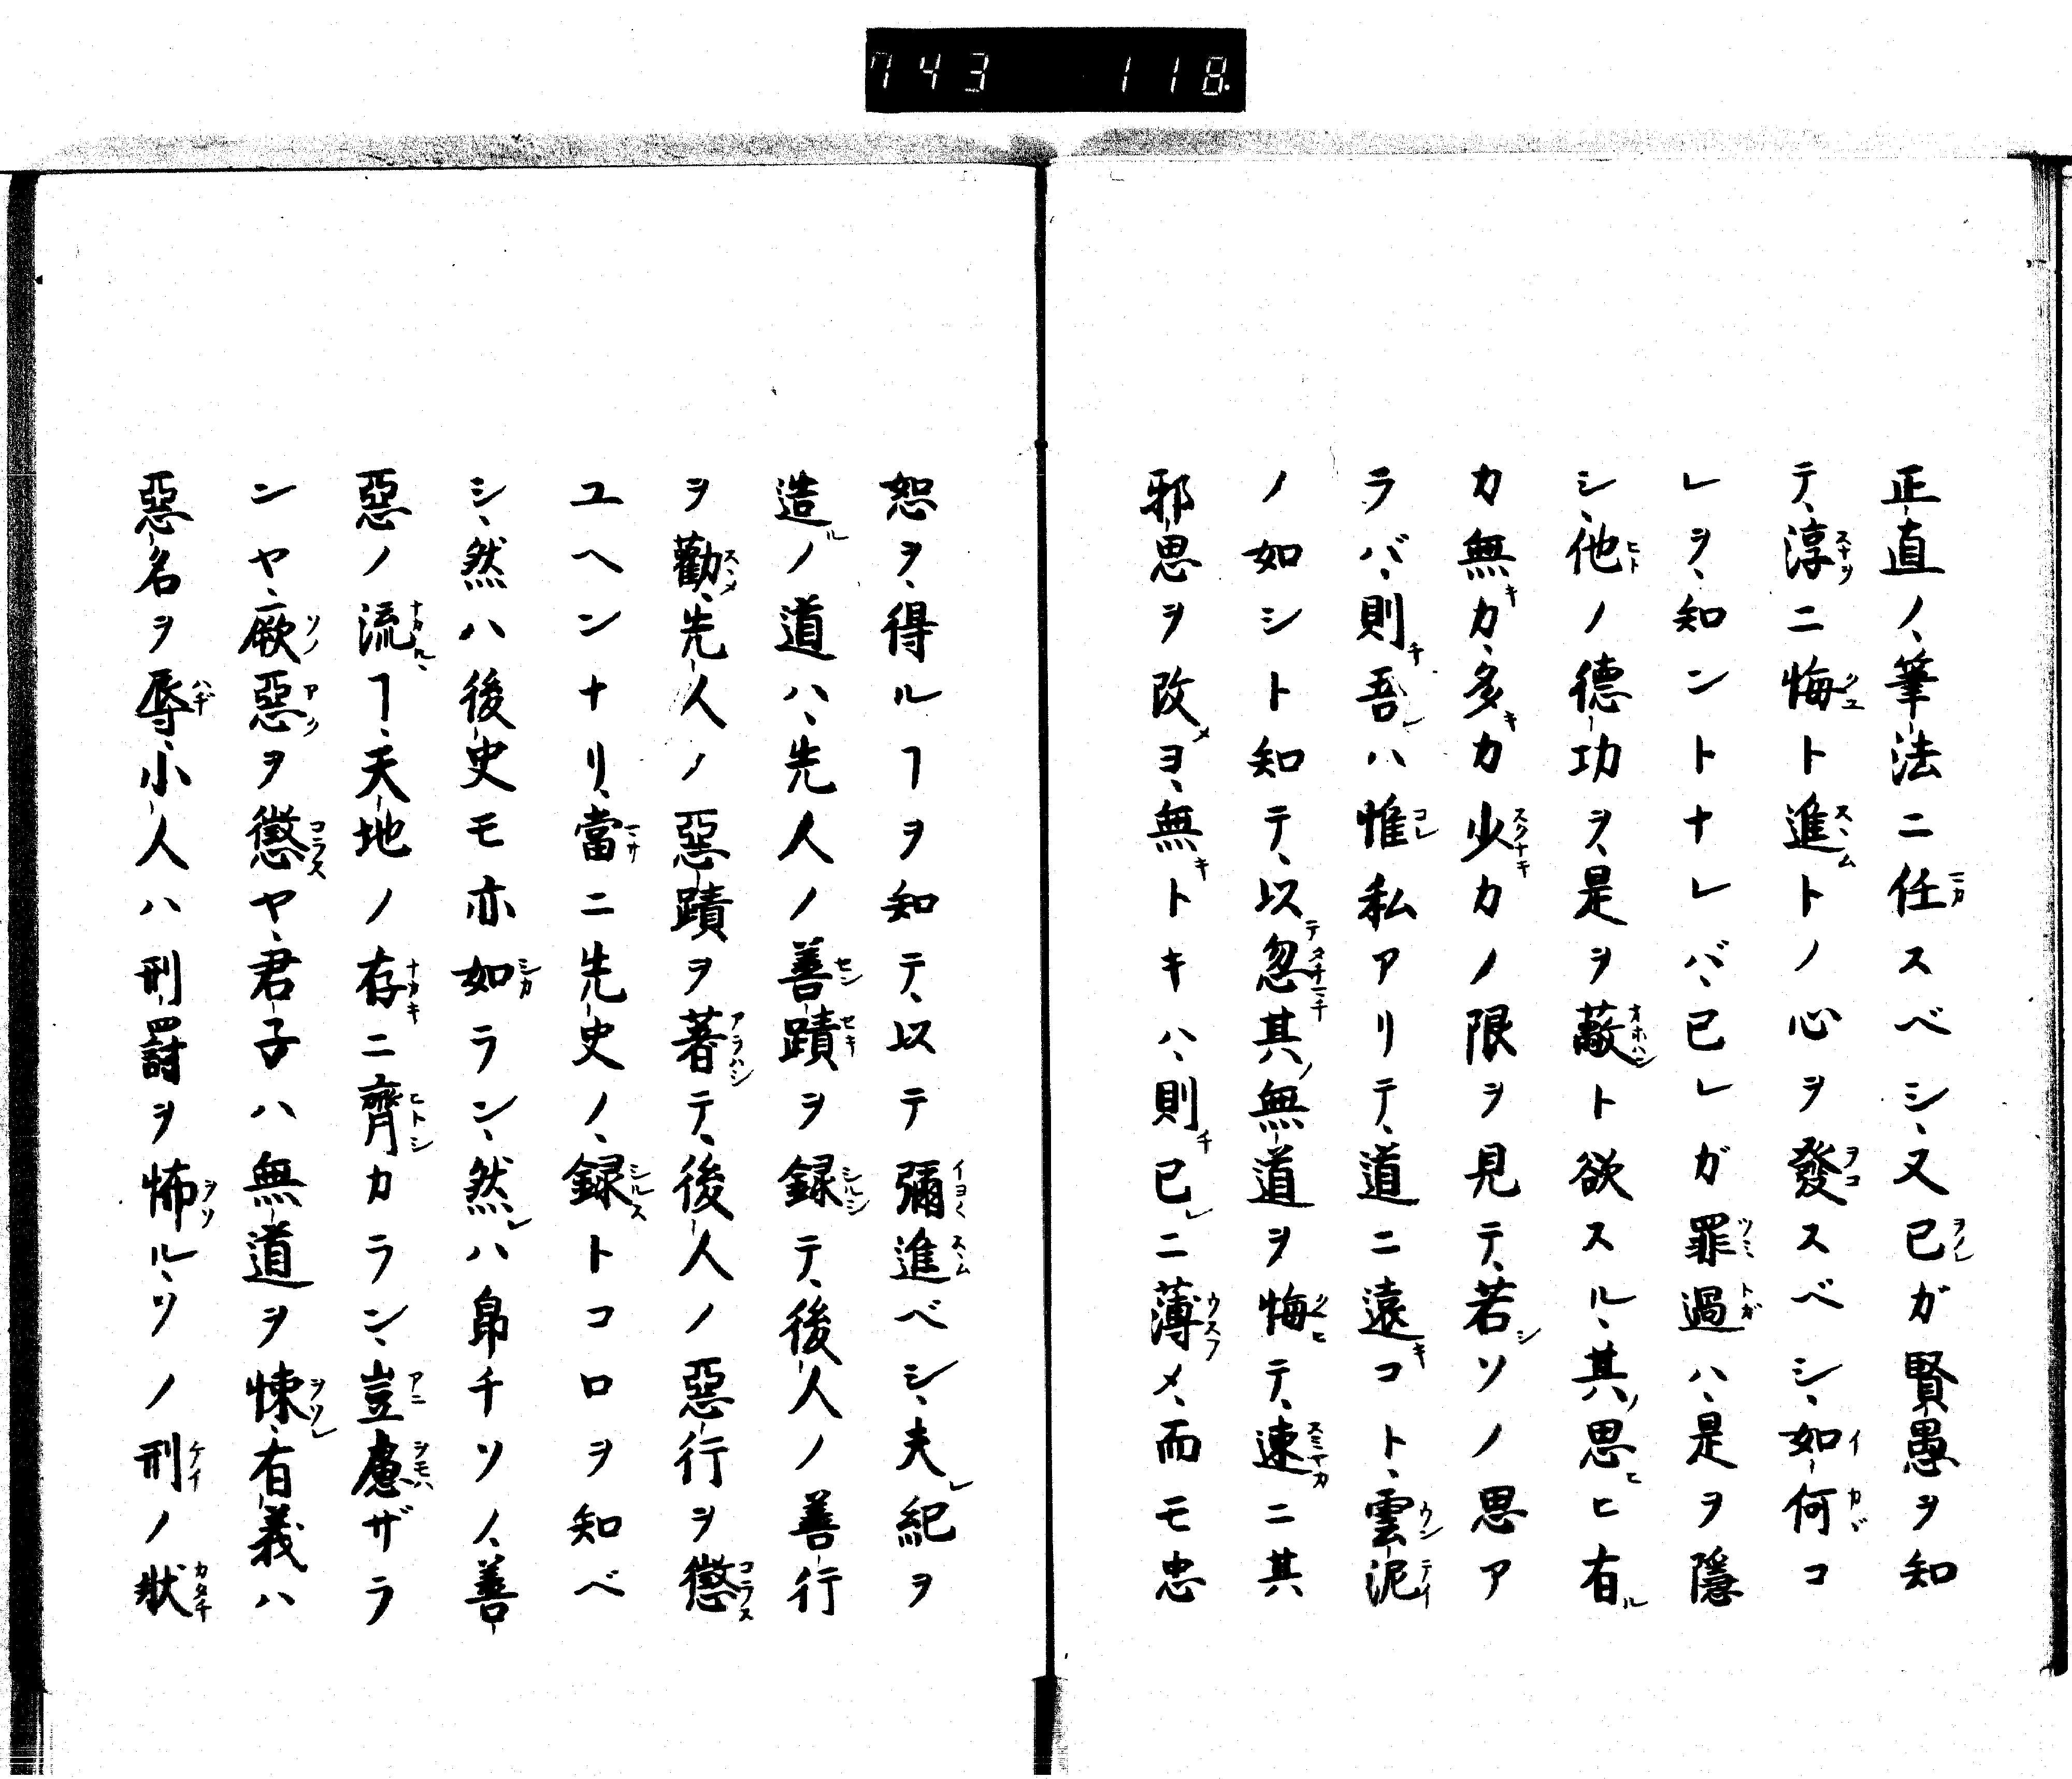 743 118.
正直ノ、筆法ニ任スベシ、又已ガ賢愚ヲ知
テ、淳ニ悔ト進トノ心ヲ發スベシ、如何コ
レヲ、知ントナレバ、已レガ罪過ハ、是ヲ隱
シ、他ノ德功ヲ、是ヲ蔽ト欲スル、其ノ思ヒヒ有ル
カ無キカ、多キカ少カノ限ヲ見テ、若シソノ思ア
ラバ、則チ吾レハ惟私アリテ、道ニ遠キコト、雲泥
ノ如シト知テ、以テ忽其ノ無道ヲ悔テ、速ニ其
邪思ヲ改メヨ、無キトキハ、則チ已レニ薄メ、而モ忠
恕ヲ、得ルヿヲ知テ、以テ彌進ベシ、夫レ紀ヲ
造ルノ道ハ、先人ノ善蹟ヲ録テ、後人ノ善行
ヲ勸、先人ノ惡蹟ヲ著テ、後人ノ惡行ヲ懲
ユヘンナリ、當ニ先史ノ、録トコロヲ知ベ
シ、然ハ後史モ亦如ラン、然レハ帛チソノ、善
惡ノ流ヿ、天地ノ存ニ齊カラン、豈慮ザラ
ンヤ、厥惡ヲ懲ヤ、君子ハ無道ヲ悚、有義ハ
惡名ヲ辱、小人ハ刑罸ヲ怖ル、ソノ刑ノ狀